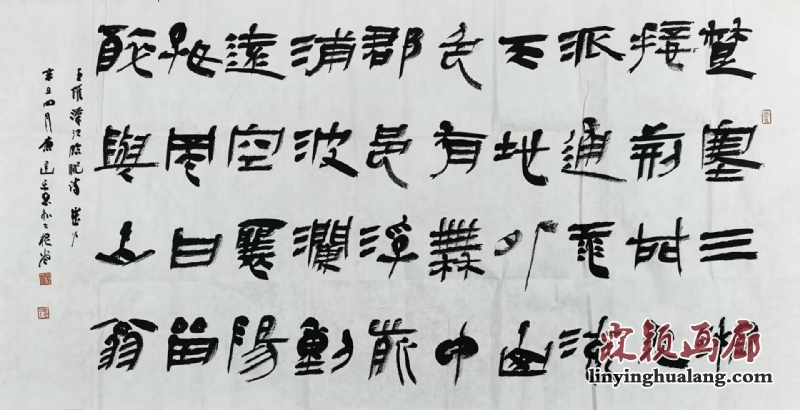 楚塞三湘
接荊門九
派通江流
天地外山
色有無中
郡邑浮前
浦波瀾動
遠空襄陽
好風日留
醉與山翁
王維漢江臨眺詩 歲
辛丑四月
霖颖画廊
linyinghualang.com